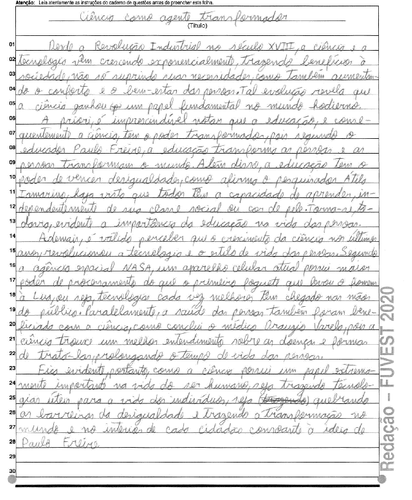 Atenção: Leia atentamente as instruções do caderno de questões antes de preencher esta folha.
Ciência como agente transformador
(Título)
01 Desde a Revolução Industrial no século XVIII, a ciência e a
02 tecnologia vêm crescendo exponencialmente, trazendo benefícios à
03 sociedade, não só suprindo suas necessidades, como também aumentan-
04 do o conforto e o bem-estar das pessoas. Tal evolução revela que
05 a ciência ganhou um papel fundamental no mundo hodierno.
06 A priori, é imprescindível notar que a educação, e conse-
07 quentemente a ciência, tem o poder transformador, pois segundo o
08 educador Paulo Freire, a educação transforma as pessoas e as
09 pessoas transformam o mundo. Além disso, a educação tem o
10 poder de vencer desigualdades, como afirma o pesquisador Atila
11 Iamarino, haja visto que todos têm a capacidade de aprender, in-
12 dependentemente de sua classe social ou cor de pele. Torna-se,
13 evidente a importância da educação na vida das pessoas.
14 Ademais, é válido perceber que o crescimento da ciência nos últimos
15 anos, revolucionou a tecnologia e o estilo de vida das pessoas. Segundo
16 a agência espacial NASA, um aparelho celular atual possui maior
17 poder de processamento do que o primeiro foguete que levou o homem
18 à Lua, ou seja, tecnologias cada vez melhores têm chegado nas mãos
19 do público. Paralelamente, a saúde das pessoas também foram bene-
20 ficiada com a ciência, como conclui o médico Drauzio Varela, pois a
21 ciência trouxe um melhor entendimento sobre as doenças e formas
22 de trata-las, prolongando o tempo de vida das pessoas.
23 Fica evidente, portanto, como a ciência possui um papel extrema-
24 mente importante na vida do ser humano, seja trazendo tecnolo-
25 gias úteis para a vida dos indivíduos, seja quebrando
26 as barreiras da desigualdade e trazendo a transformação no
27 mundo e no interior de cada cidadão consoante à ideia de
28 Paulo Freire.
29
30
Redação – FUVEST 2020